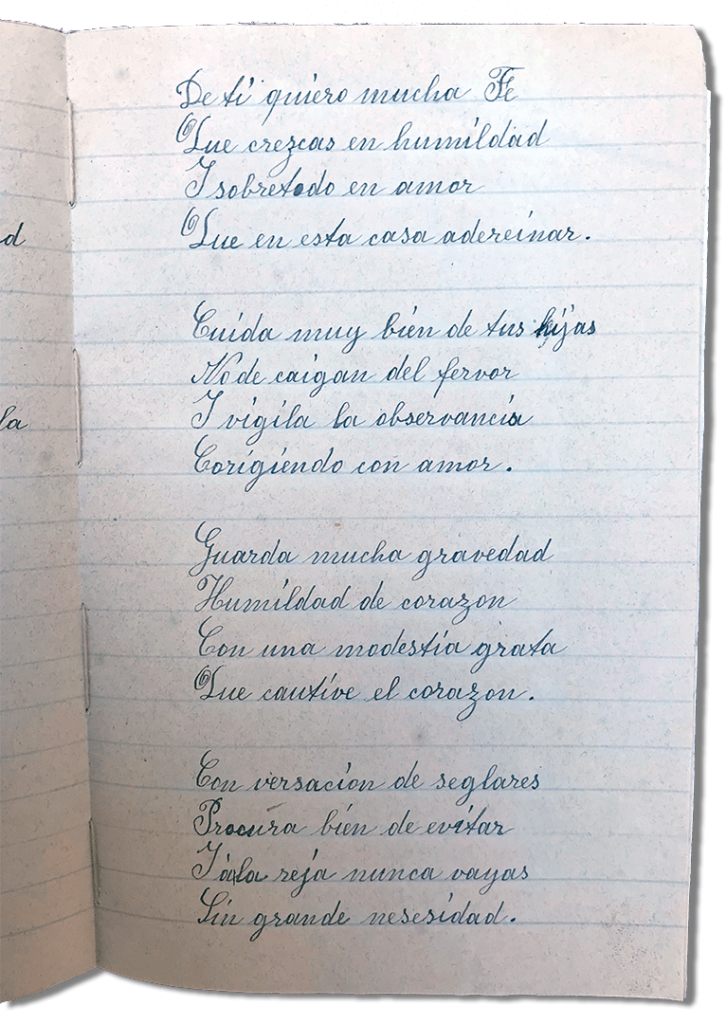 De ti quiero mucha Fé
Que crezcas en humildad
I sobretodo en amor
Que en esta casa adereinar.
d
Cuida muy bien de tus hijas
No de caigan del fervor
I vigila la observancia
la
Corigiendo con amor.
Guarda mucha gravedad
Humildad de corazon
Con una modestia grata
Que cautive el corazon.
Con versacion de seglares
Procura bien de evitar
I ála reja nunca vayas
Sin grande nesesidad.